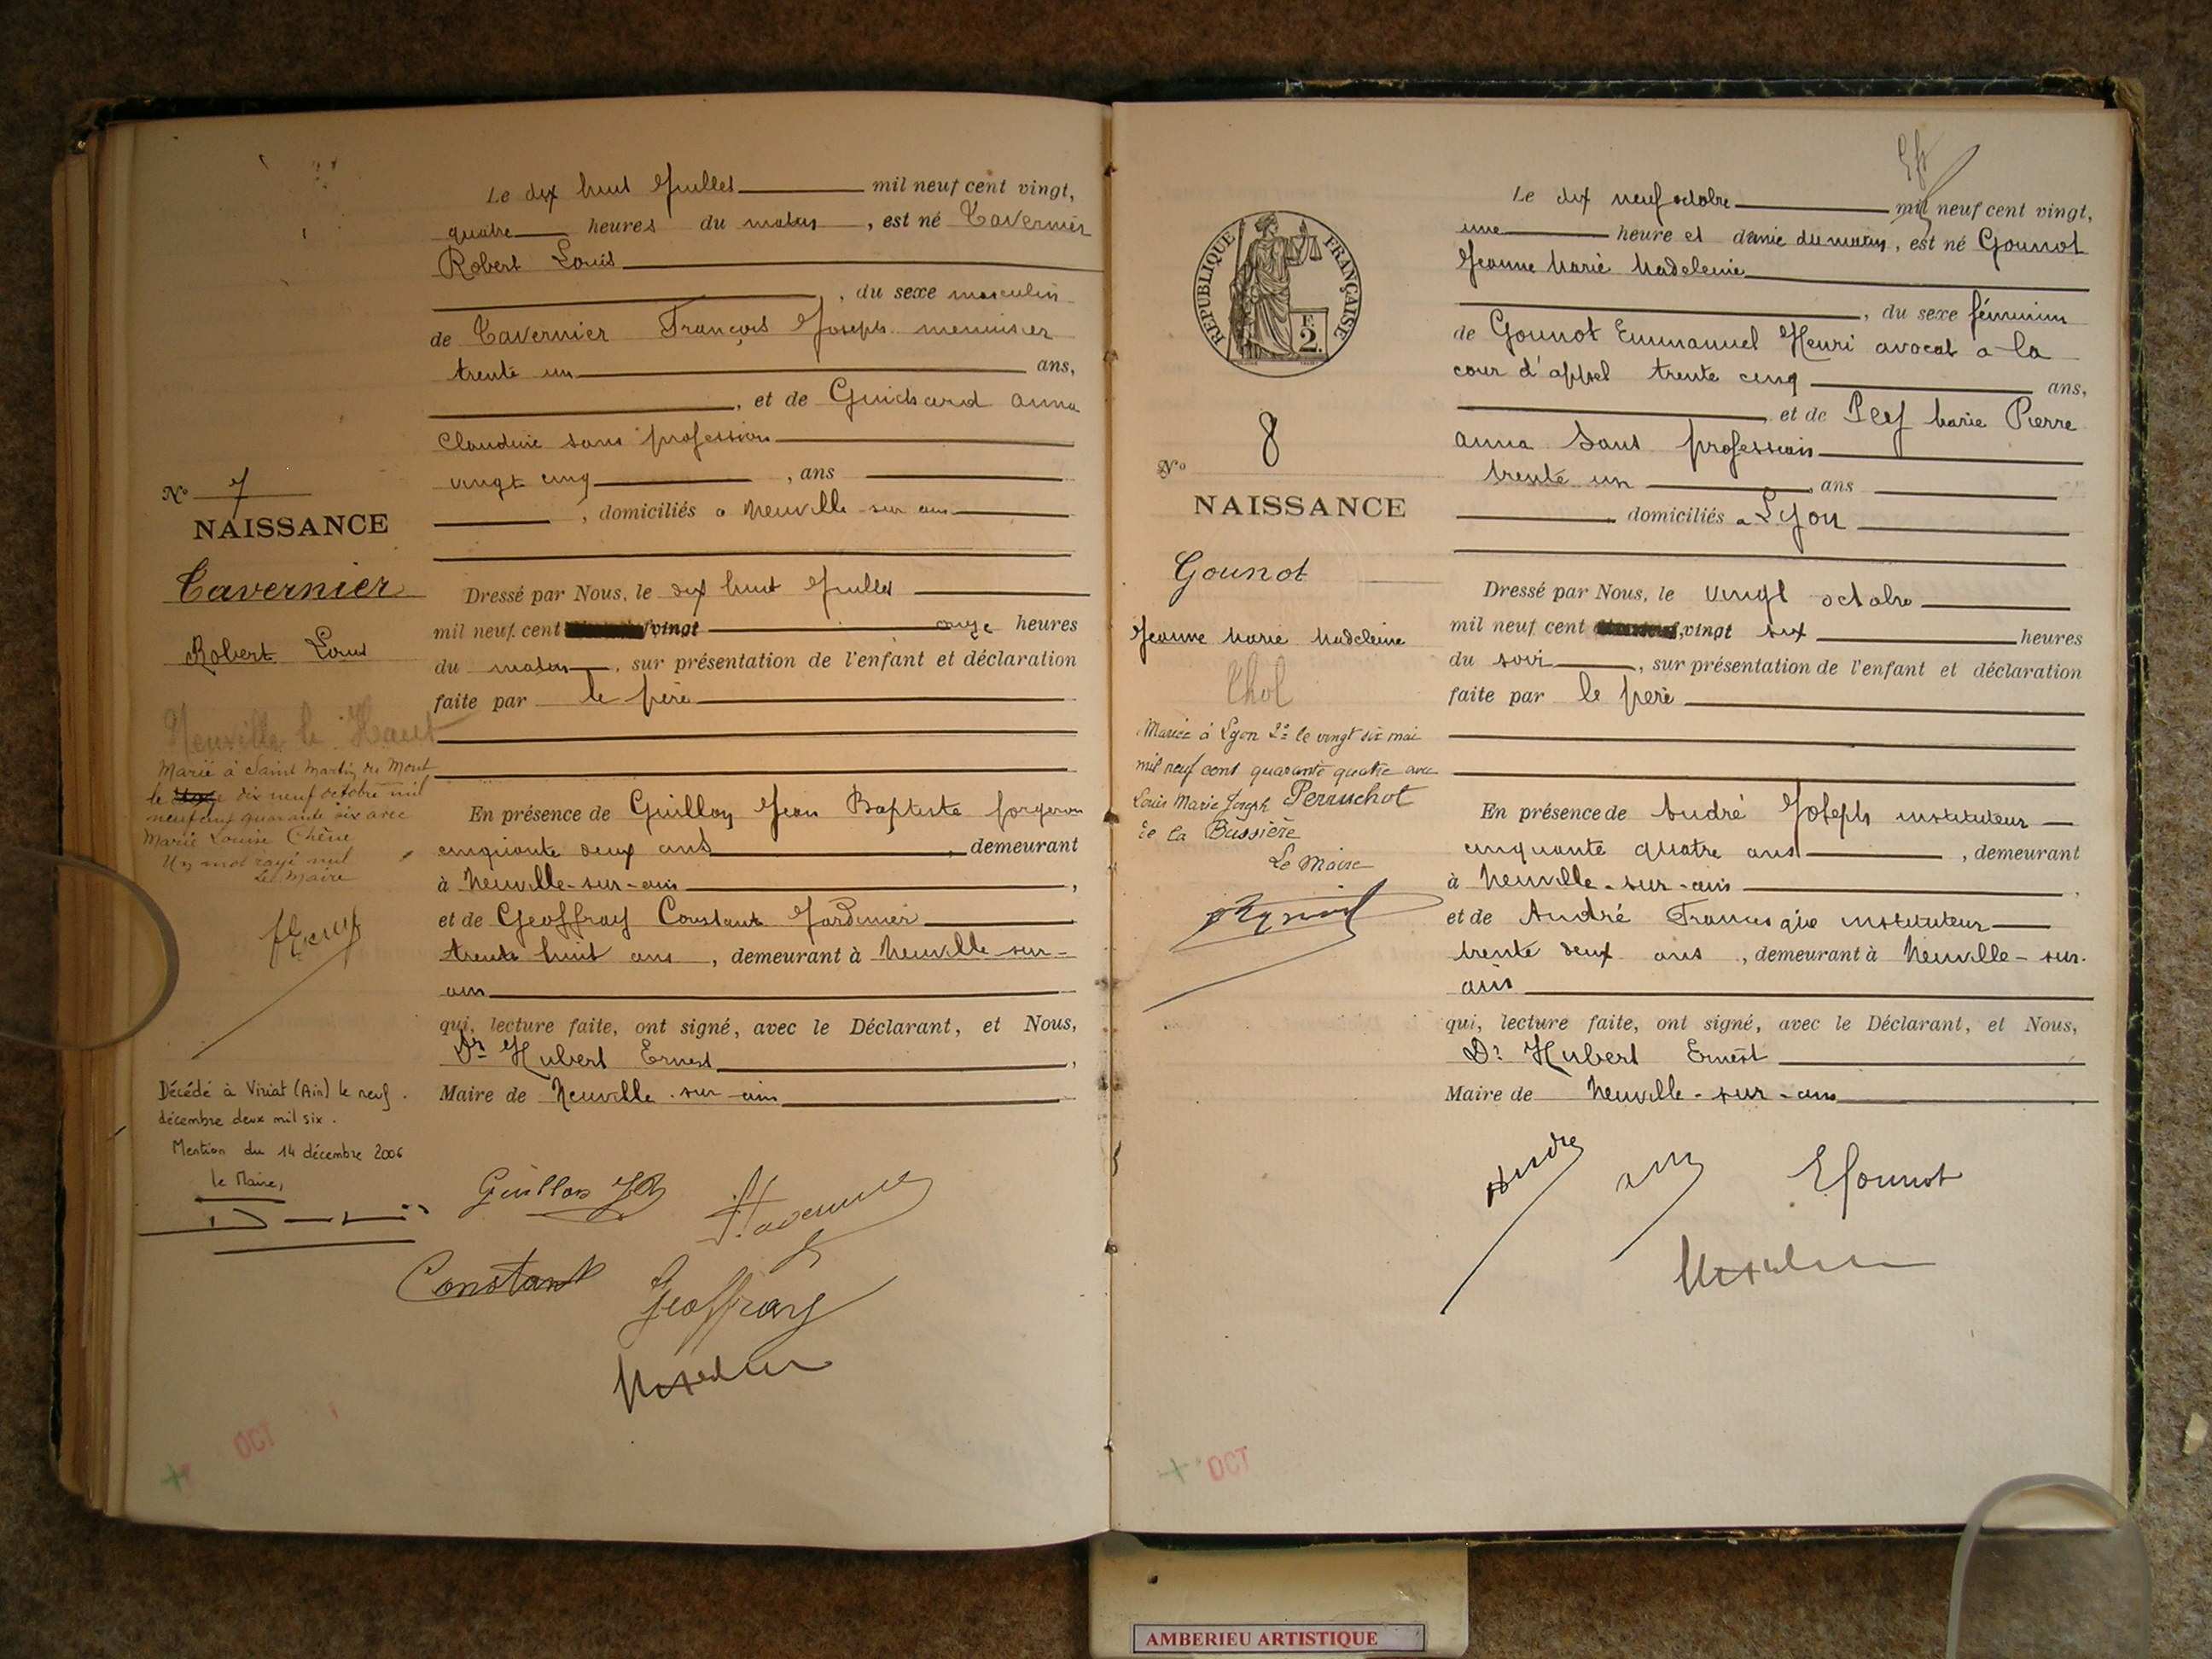 Le dix huit Juillet mil neuf cent vingt,
quatre heures du matin, est né Tavernier
Robert Louis
, du sexe masculin
de Tavernier François Joseph menuisier
trente un ans,
, et de Guichard Anna
Claudine sans profession
vingt cinq, ans
, domiciliés à Neuville-sur-ain
Nº 7
NAISSANCE
Tavernier
Robert Louis
Dressé par Nous, le dix huit Juillet
mil neuf cent vingt onze heures
du matin, sur présentation de l'enfant et déclaration
faite par le père
Neuville le Haut
Marié à Saint Martin du Mont
le dix neuf octobre mil
neuf cent quarante six avec
Marie Louise Chêne
Un mot rayé nul
Le Maire
En présence de Guillon Jean Baptiste forgeron
cinquante deux ans, demeurant
à Neuville-sur-ain,
et de Geoffray Constant Jardinier
trente huit ans, demeurant à Neuville-sur-
ain
qui, lecture faite, ont signé, avec le Déclarant, et Nous,
Dr Hubert Ernest,
Maire de Neuville-sur-ain
Décédé à Viriat (Ain) le neuf
décembre deux mil six.
Mention du 14 décembre 2006
le Maire,
Guillon JB
Constant
Geoffray
OCT
Le dix neuf octobre mil neuf cent vingt,
une heure et demie du matin, est né Gounot
Jeanne Marie Madeleine
, du sexe féminin
de Gounot Emmanuel Henri avocat a la
cour d'appel trente cinq ans,
et de Marie Pierre
anna Sans profession
trente un, ans
domiciliés à Lyon
RÉPUBLIQUE FRANÇAISE
F.
2.
Nº 8
NAISSANCE
Gounot
Jeanne Marie Madeleine
Chol
Mariée à Lyon 2º le vingt six mai
mil neuf cent quarante quatre avec
Louis Marie Joseph Perruchot
de la Bussière
Le Maire
Dressé par Nous, le vingt octobre
mil neuf cent vingt six heures
du soir, sur présentation de l'enfant et déclaration
faite par le père
En présence de André Joseph instituteur
cinquante quatre ans, demeurant
à Neuville-sur-ain
et de André Francisque instituteur
trente deux ans, demeurant à Neuville-sur-
ain
qui, lecture faite, ont signé, avec le Déclarant, et Nous,
Dr Hubert Ernest
Maire de Neuville-sur-ain
André
EGounot
OCT
AMBERIEU ARTISTIQUE